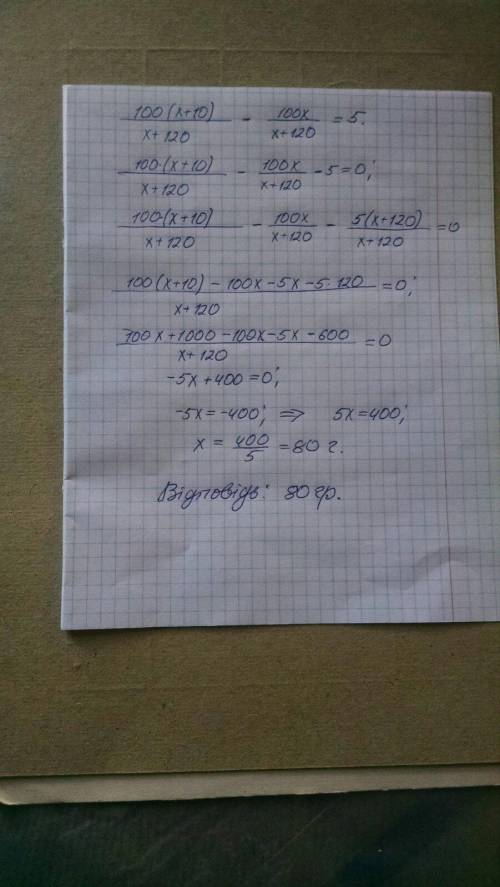 100(x+10)/x+120 - 100x/x+120 = 5.
100·(x+10)/x+120 - 100x/x+120 - 5=0;
100·(x+10)/x+120 - 100x/x+120 - 5(x+120)/x+120 =0
100(x+10) - 100x - 5x - 5·120/x+120 =0;
100x+1000-100x-5x-600/x+120 =0
-5x+400=0;
-5x=-400; ⇒ 5x=400;
x = 400/5 = 80 г.
Відповідь: 80 гр.